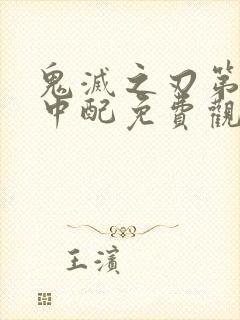 鬼滅之刃第
中配免費觀
王濱